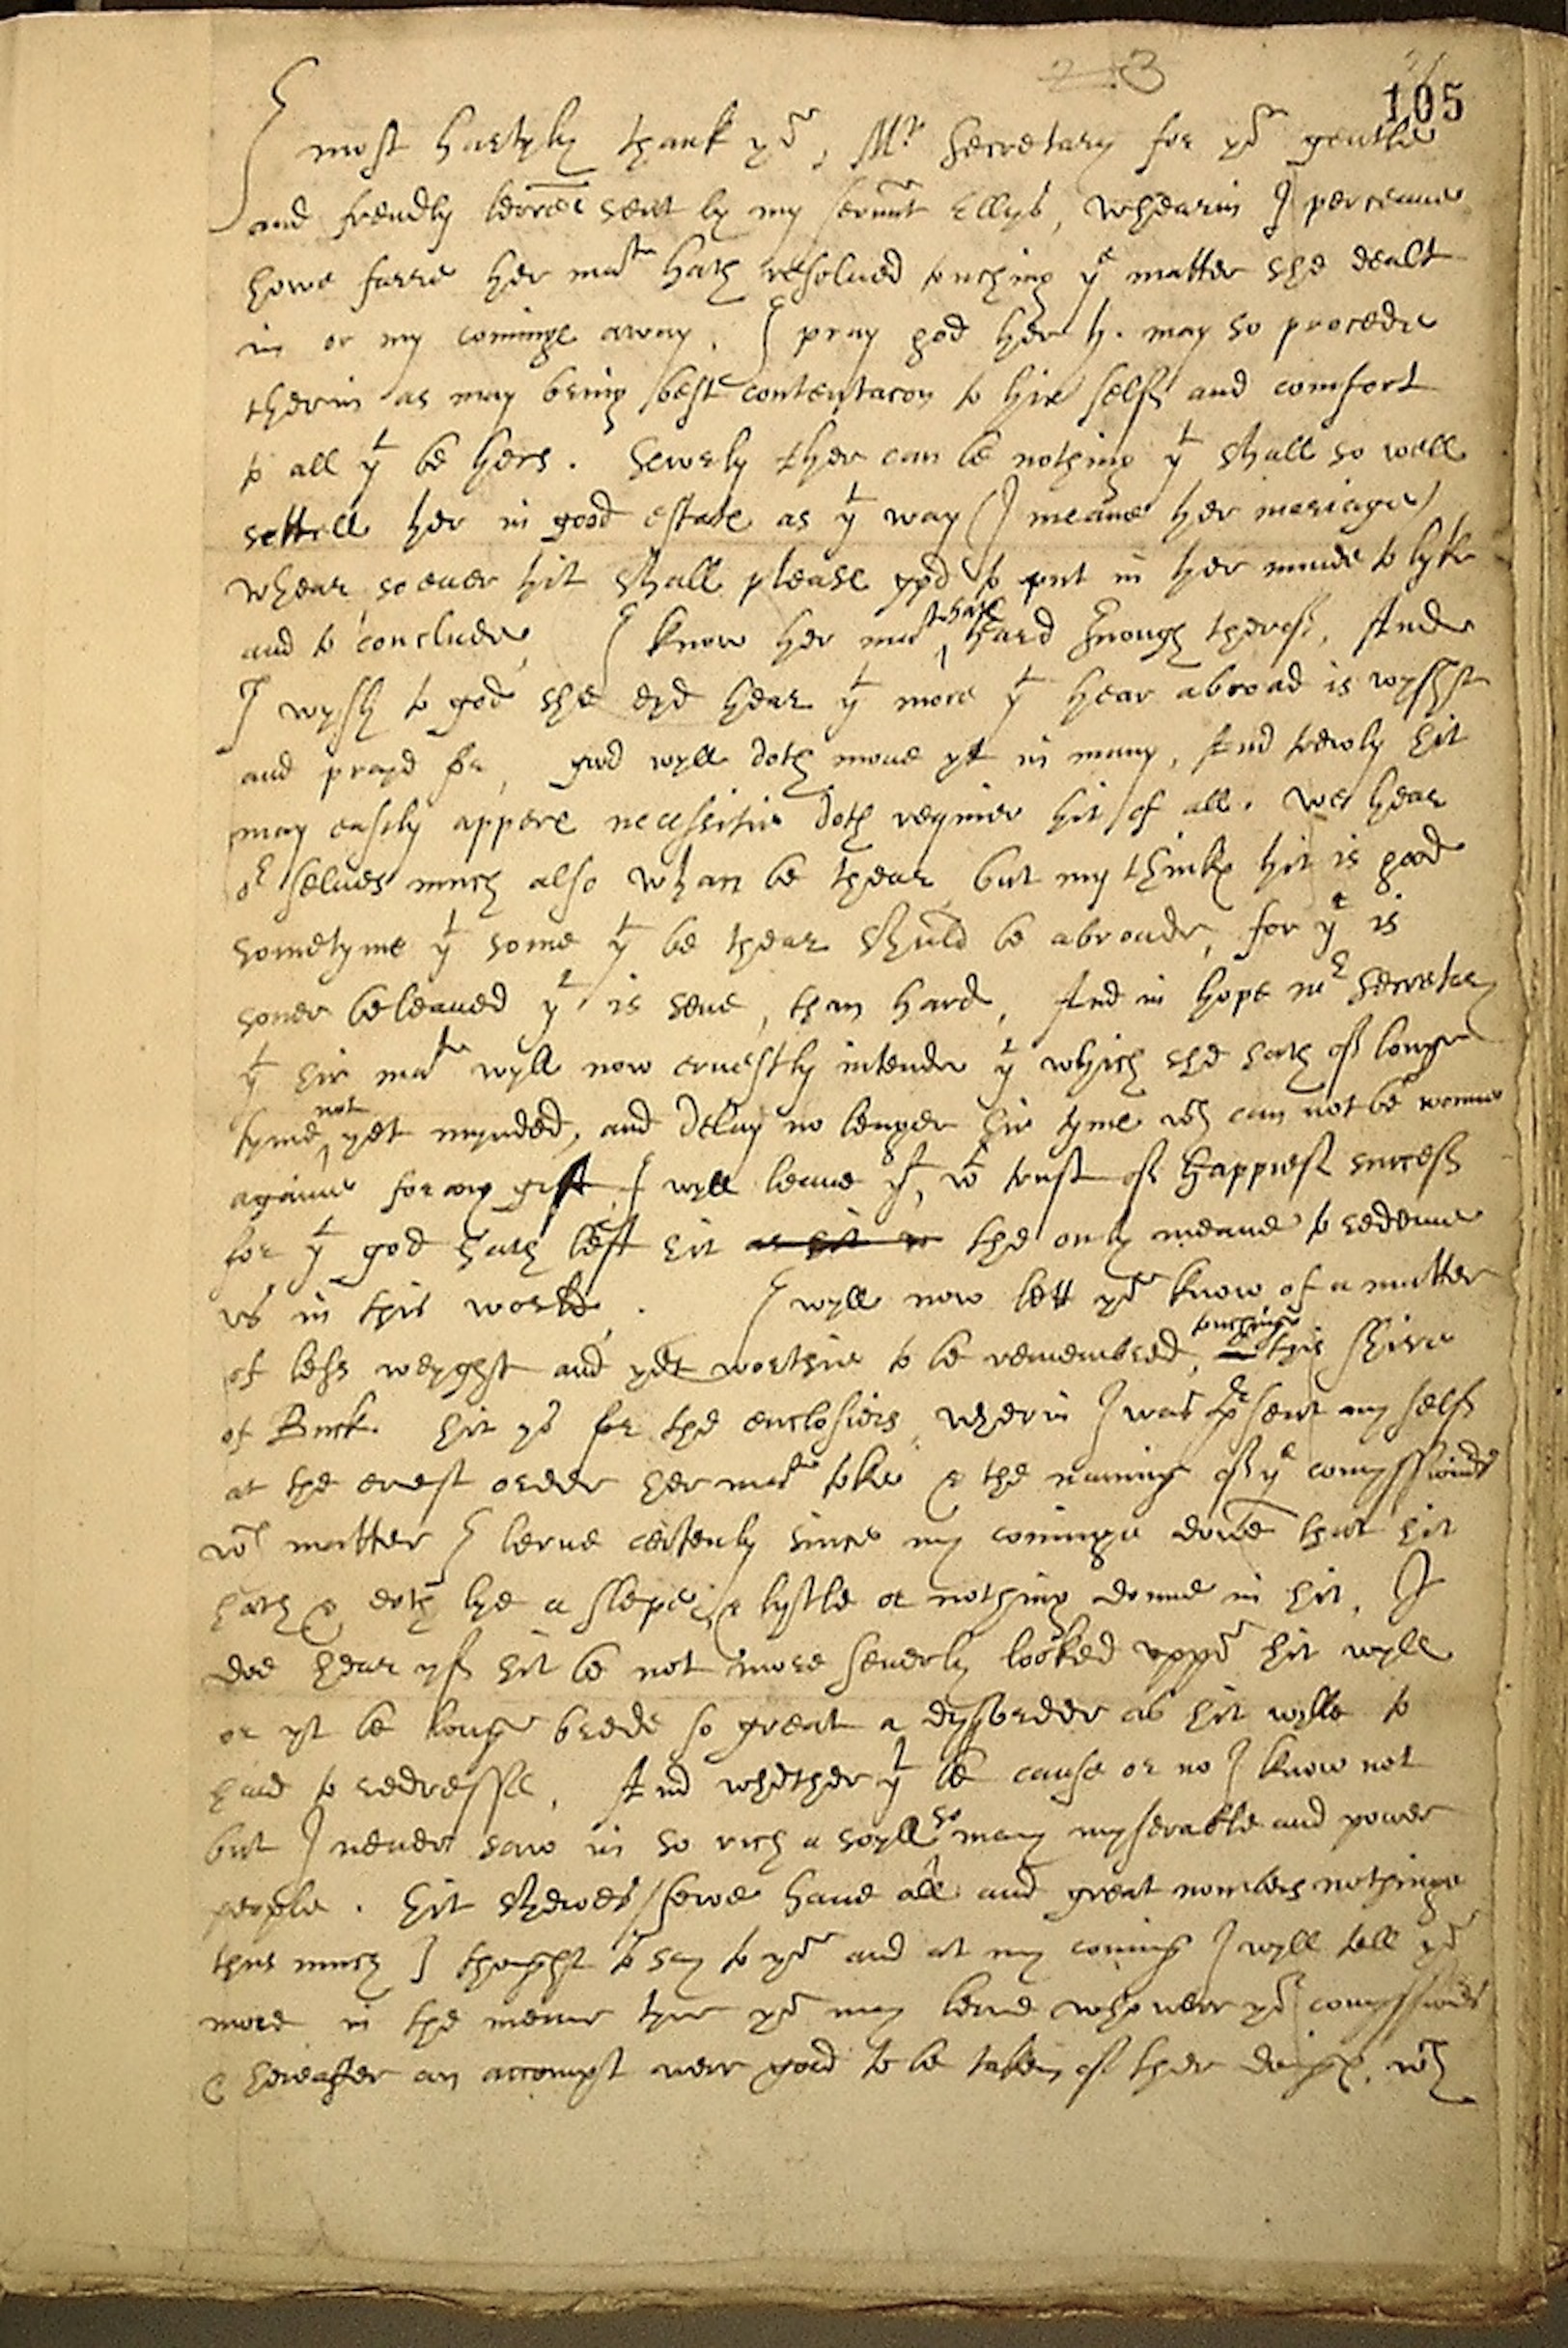 23
105
I most hartyly thank yow, Mr Secretary for yor gentle
and frendly lettres sent by my servant Ellys, whearin I perceaue
howe farre her matie hath resolued touching ye matter she dealt
in or my cominge away. I pray god her h. may so procede
therin as may bring best contentacon to hir self and comfort
to all yt be hers. Sewerly ther can be nothing yt shall so well
settell her in good estate as yt way (I meane her mariage)
whear so euer hit shall please god to put in her minde to lyke
and to conclude, I know her matie hath hard Inough therof, And
I wysh to god she dyd hear yt more yt hear abroad is wyshst
and prayd for, good wyll doth moue yt in many, And trewly hit
may easyly appere necessitie doth requier hit of all. We hear
or selues much also whan we be thear but my thinkes hit is good
sometyme yt some yt be thear shuld be abroade, for yt is
soner beleaued yt is sene, than hard, And in hope mr Secretary
yt hir matie wyll now ernestly intende yt which she hath of longe
tyme not yet mynded, and delay no lenger hir tyme wch can not be wonne
againe for any gift I wyll leaue yt, wt trust of happiest success
for yt god hath left hit the only meane to redeme
vs in this world. I wyll now lett you know of a matter
of less weyght and yet worthie to be remembred, touching this shire
of Buck. hit ys for the enclosiers, wherin I was present my self
at the ernest order her matie toke & the naming of ye comyssioners
wch matter I lerne certenly since my cominge doune that hit
hath & doth lye a slepe, & lyttle or nothing donne in hit, I
doe hear yf hit be not more seuerly looked vppon hit wyll
or yt be longe brede so great a dyssorder as hit wylbe to
hard to redresse, And whether yt be cause or no I know not
but I neuer saw in so rich a soyll so many myserable and power
people. hit shewes fewe haue all and great nombers nothinge
thus much I thought to say to you and at my coming I wyll tell you
more in the meane tyme you may lerne who wear yor comyssioners
& hereafter an accompt wear good to be taken of ther doings, wch